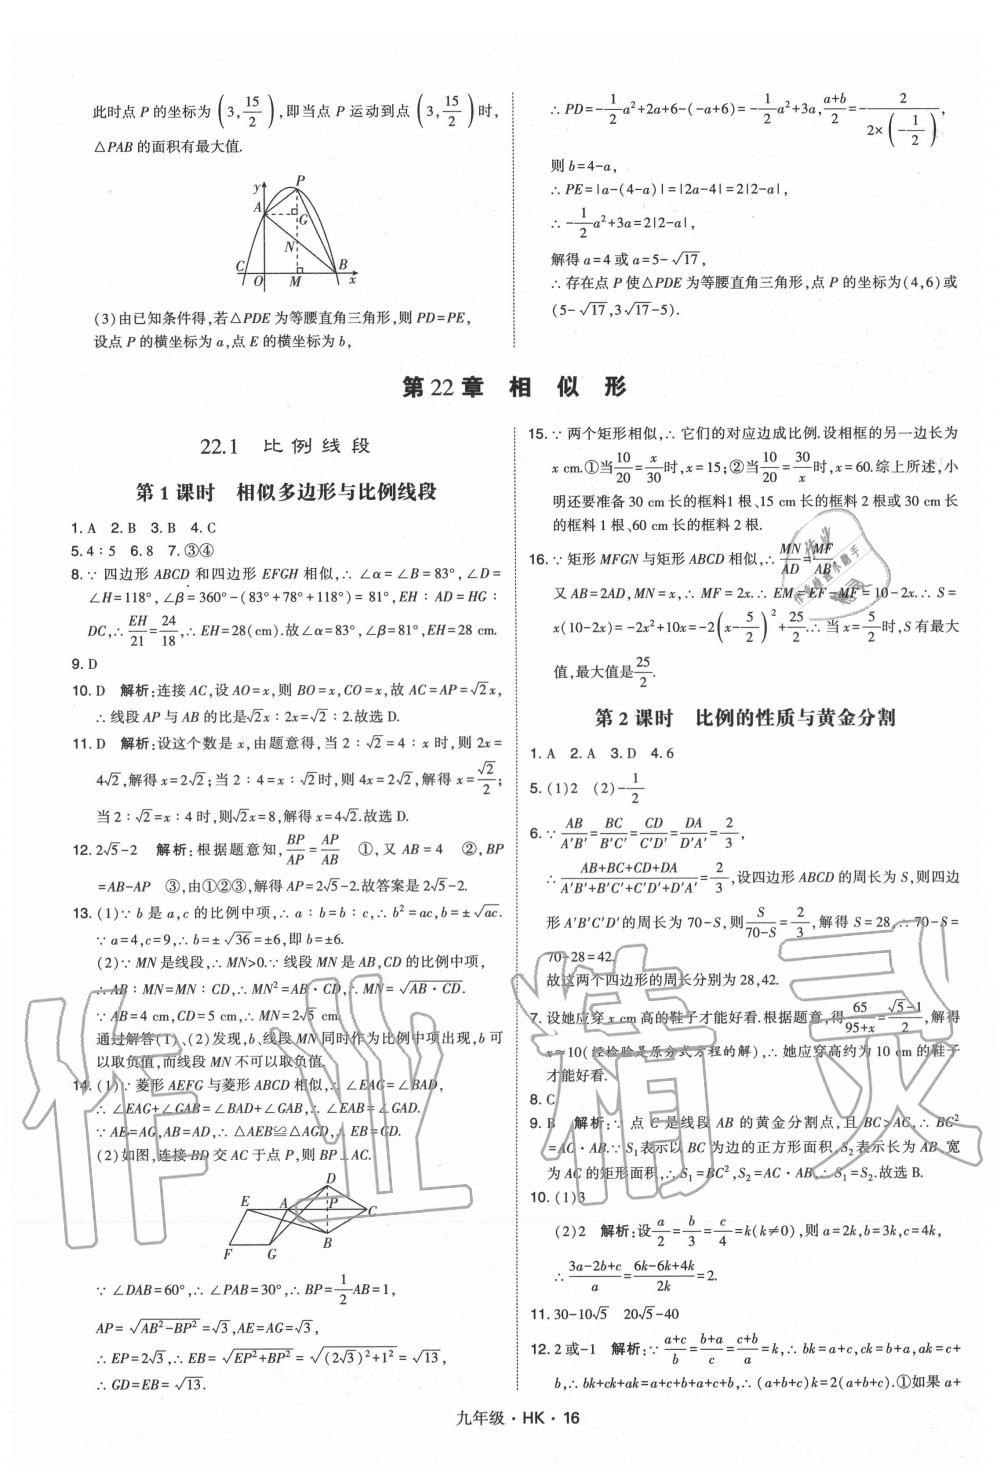 此时点 P 的坐标为(3,15/2),即当点 P 运动到点(3,15/2)时,
△PAB 的面积有最大值.
y
P
A
G
N
C
O
M
B
x
(3)由已知条件得,若△PDE 为等腰直角三角形,则 PD=PE,
设点 P 的横坐标为 a,点 E 的横坐标为 b,
∴PD=-1/2a²+2a+6-(-a+6)=-1/2a²+3a,(a+b)/2=-2/(2×(-1/2)),
则 b=4-a,
∴PE=|a-(4-a)|=|2a-4|=2|2-a|,
∴-1/2a²+3a=2|2-a|,
解得 a=4 或 a=5-√17,
∴存在点 P 使△PDE 为等腰直角三角形,点 P 的坐标为(4,6)或
(5-√17,3√17-5).
第 22 章 相 似 形
22.1 比 例 线 段
第 1 课时 相似多边形与比例线段
1. A 2. B 3. B 4. C
5. 4∶5 6. 8 7. ③④
8. ∵四边形 ABCD 和四边形 EFGH 相似,∴∠α=∠B=83°,∠D=
∠H=118°,∠β=360°-(83°+78°+118°)=81°,EH∶AD=HG∶
DC,∴EH/21=24/18,∴EH=28(cm).故∠α=83°,∠β=81°,EH=28 cm.
9. D
10. D 解析:连接 AC,设 AO=x,则 BO=x,CO=x,故 AC=AP=√2x,
∴线段 AP 与 AB 的比是√2x∶2x=√2∶2.故选 D.
11. D 解析:设这个数是 x,由题意得,当 2∶√2=4∶x 时,则 2x=
4√2,解得 x=2√2;当 2∶4=x∶√2时,则 4x=2√2,解得 x=√2/2;
当 2∶√2=x∶4 时,则√2x=8,解得 x=4√2.故选 D.
12. 2√5-2 解析:根据题意知,BP/AP=AP/AB ①,又 AB=4 ②,BP
=AB-AP ③,由①②③,解得 AP=2√5-2.故答案是 2√5-2.
13. (1)∵b 是 a,c 的比例中项,∴a∶b=b∶c,∴b²=ac,b=±√ac.
∵a=4,c=9,∴b=±√36=±6,即 b=±6.
(2)∵MN 是线段,∴MN>0.∵线段 MN 是 AB,CD 的比例中项,
∴AB∶MN=MN∶CD,∴MN²=AB·CD,∴MN=√AB·CD.
∵AB=4 cm,CD=5 cm,∴MN=2√5 cm.
通过解答(1)、(2)发现,b、线段 MN 同时作为比例中项出现,b 可
以取负值,而线段 MN 不可以取负值.
14. (1)∵菱形 AEFG 与菱形 ABCD 相似,∴∠EAG=∠BAD,
∴∠EAG+∠GAB=∠BAD+∠GAB,∴∠EAB=∠GAD.
∵AE=AG,AB=AD,∴△AEB≌△AGD,∴EB=GD.
(2)如图,连接 BD 交 AC 于点 P,则 BP⊥AC.
D
E
A
P
C
B
F
G
∵∠DAB=60°,∴∠PAB=30°,∴BP=1/2AB=1,
AP=√AB²-BP²=√3,AE=AG=√3,
∴EP=2√3,∴EB=√EP²+BP²=√(2√3)²+1²=√13,
∴GD=EB=√13.
15. ∵两个矩形相似,∴它们的对应边成比例.设相框的另一边长为
x cm.①当10/20=x/30时,x=15;②当10/20=30/x时,x=60.综上所述,小
明还要准备 30 cm 长的框料1 根、15 cm 长的框料 2 根或 30 cm 长
的框料 1 根、60 cm 长的框料 2 根.
16. ∵矩形 MFGN 与矩形 ABCD 相似,∴MN/AD=MF/AB.
又 AB=2AD,MN=x,∴MF=2x.∴EM=EF-MF=10-2x.∴S=
x(10-2x)=-2x²+10x=-2(x-5/2)²+25/2.∴当 x=5/2时,S 有最大
值,最大值是25/2.
第 2 课时 比例的性质与黄金分割
1. A 2. A 3. D 4. 6
5. (1)2 (2)-1/2
6. ∵AB/A′B′=BC/B′C′=CD/C′D′=DA/D′A′=2/3,
∴(AB+BC+CD+DA)/(A′B′+B′C′+C′D′+D′A′)=2/3,设四边形 ABCD 的周长为 S,则四边
形 A′B′C′D′的周长为 70-S,则S/(70-S)=2/3,解得 S=28,∴70-S=
70-28=42.
故这两个四边形的周长分别为 28,42.
7. 设她应穿 x cm 高的鞋子才能好看.根据题意,得65/(95+x)=(√5-1)/2,解得
x≈10(经检验是原分式方程的解),∴她应穿高约为 10 cm 的鞋子
才能好看.
8. C
9. B 解析:∵点 C 是线段 AB 的黄金分割点,且 BC>AC,∴BC²
=AC·AB.∵S₁表示以 BC 为边的正方形面积,S₂表示长为 AB、宽
为 AC 的矩形面积,∴S₁=BC²,S₂=AC·AB,∴S₁=S₂.故选 B.
10. (1)3
(2)2 解析:设a/2=b/3=c/4=k(k≠0),则 a=2k,b=3k,c=4k,
∴(3a-2b+c)/a=(6k-6k+4k)/2k=2.
11. 30-10√5 20√5-40
12. 2 或-1 解析:∵(a+c)/b=(b+a)/c=(c+b)/a=k,∴bk=a+c,ck=b+a,ak=c+
b,∴bk+ck+ak=a+c+b+a+c+b,∴(a+b+c)k=2(a+b+c).①如果 a+
九年级·HK·16
作业精灵